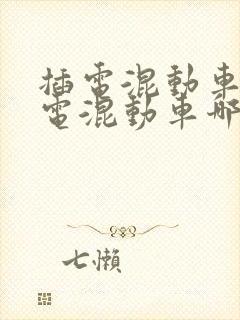 插電混動車
電混動車哪
七懶